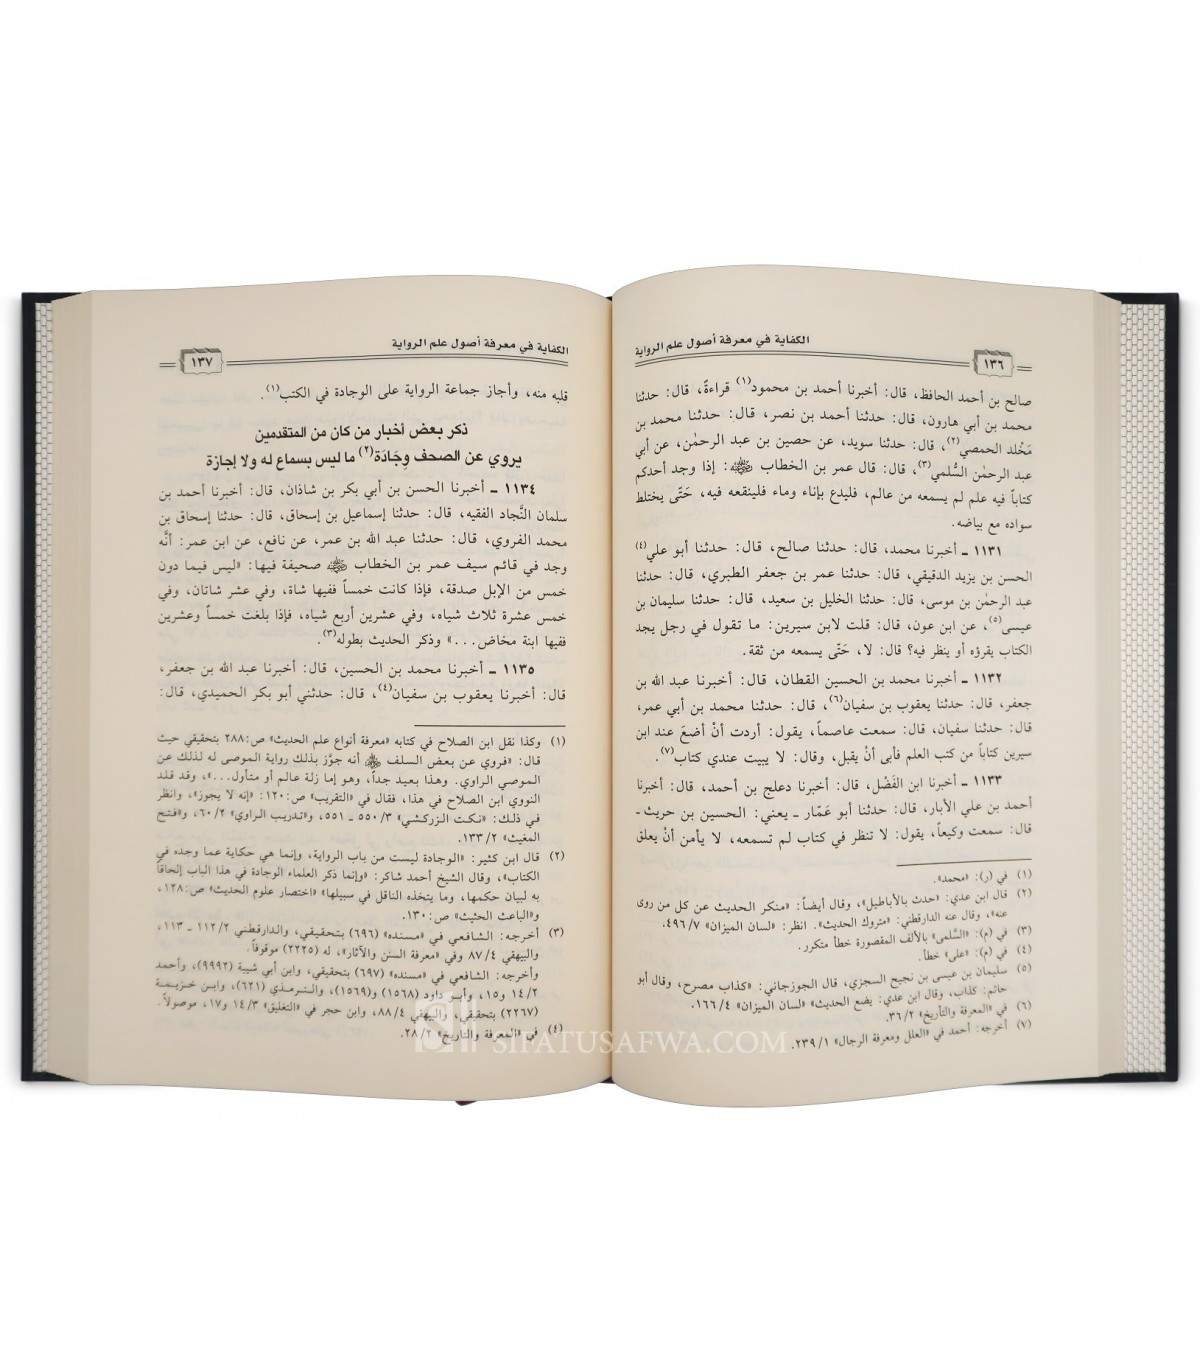 الكفاية في معرفة أصول علم الرواية
١٣٦
صالح بن أحمد الحافظ، قال: أخبرنا أحمد بن محمود(١) قراءةً، قال: حدثنا
محمد بن أبي هارون، قال: حدثنا أحمد بن نصر، قال: حدثنا محمد بن
مَخْلد الحمصي(٢)، قال: حدثنا سويد، عن حصين بن عبد الرحمٰن، عن أبي
عبد الرحمٰن السُّلمي(٣)، قال: قال عمر بن الخطاب رضي الله عنه: إذا وجد أحدكم
كتاباً فيه علم لم يسمعه من عالم، فليدع بإناء وماء فلينقعه فيه، حَتّى يختلط
سواده مع بياضه.
١١٣١ ـ أخبرنا محمد، قال: حدثنا صالح، قال: حدثنا أبو علي(٤)
الحسن بن يزيد الدقيقي، قال: حدثنا عمر بن جعفر الطبري، قال: حدثنا
عبد الرحمٰن بن موسى، قال: حدثنا الخليل بن سعيد، قال: حدثنا سليمان بن
عيسى(٥)، عن ابن عون، قال: قلت لابن سيرين: ما تقول في رجل يجد
الكتاب يقرؤه أو ينظر فيه؟ قال: لا، حَتّى يسمعه من ثقة.
١١٣٢ ـ أخبرنا محمد بن الحسين القطان، قال: أخبرنا عبد الله بن
جعفر، قال: حدثنا يعقوب بن سفيان(٦)، قال: حدثنا محمد بن أبي عمر،
قال: حدثنا سفيان، قال: سمعت عاصماً، يقول: أردت أنْ أضعَ عند ابن
سيرين كتاباً من كتب العلم فأبى أنْ يقبل، وقال: لا يبيت عندي كتاب(٧).
١١٣٣ ـ أخبرنا ابن الفَضْل، قال: أخبرنا دعلج بن أحمد، قال: أخبرنا
أحمد بن علي الأبار، قال: حدثنا أبو عَمّار ـ يعني: الحسين بن حريث ـ
قال: سمعت وكيعاً، يقول: لا تنظر في كتاب لم تسمعه، لا يأمن أنْ يعلق
(١) في (ر): «محمد».
(٢) قال ابن عدي: «حدث بالأباطيل»، وقال أيضاً: «منكر الحديث عن كل من روى
عنه»، وقال عنه الدارقطني: «متروك الحديث». انظر: «لسان الميزان» ٤٩٦/٧.
(٣) في (م): «السُّلمى» بالألف المقصورة خطأ متكرر.
(٤) في (م): «على» خطأ.
(٥) سليمان بن عيسى بن نجيح السجزي، قال الجوزجاني: «كذاب مصرح، وقال أبو
حاتم: كذاب، وقال ابن عدي: يضع الحديث» «لسان الميزان» ١٦٦/٤.
(٦) في «المعرفة والتأريخ» ٣٦/٢.
(٧) أخرجه: أحمد في «العلل ومعرفة الرجال» ٢٣٩/١.
الكفاية في معرفة أصول علم الرواية
١٣٧
قلبه منه، وأجاز جماعة الرواية على الوجادة في الكتب(١).
ذكر بعض أخبار من كان من المتقدمين
يروي عن الصحف وِجَادَة(٢) ما ليس بسماع له ولا إجازة
١١٣٤ ـ أخبرنا الحسن بن أبي بكر بن شاذان، قال: أخبرنا أحمد بن
سلمان النَّجاد الفقيه، قال: حدثنا إسماعيل بن إسحاق، قال: حدثنا إسحاق بن
محمد الفروي، قال: حدثنا عبد الله بن عمر، عن نافع، عن ابن عمر: أنَّه
وجد في قائم سيف عمر بن الخطاب رضي الله عنه صحيفة فيها: «ليس فيما دون
خمس من الإبل صدقة، فإذا كانت خمساً ففيها شاة، وفي عشر شاتان، وفي
خمس عشرة ثلاث شياه، وفي عشرين أربع شياه، فإذا بلغت خمساً وعشرين
ففيها ابنة مخاض...» وذكر الحديث بطوله(٣).
١١٣٥ ـ أخبرنا محمد بن الحسين، قال: أخبرنا عبد الله بن جعفر،
قال: أخبرنا يعقوب بن سفيان(٤)، قال: حدثني أبو بكر الحميدي، قال:
(١) وكذا نقل ابن الصلاح في كتابه «معرفة أنواع علم الحديث» ص:٢٨٨ بتحقيقي حيث
قال: «فروي عن بعض السلف رضي الله عنهم أنه جوَّز بذلك رواية الموصى له لذلك عن
الموصي الراوي. وهذا بعيد جداً، وهو إما زلة عالم أو متأول...»، وقد قلد
النووي ابن الصلاح في هذا، فقال في «التقريب» ص:١٢٠: «إنه لا يجوز»، وانظر
في ذلك: «نكت الزركشي» ٥٥٠/٣ ـ ٥٥١، و«تدريب الراوي» ٦٠/٢، و«فتح
المغيث» ١٣٣/٢.
(٢) قال ابن كثير: «الوجادة ليست من باب الرواية، وإنما هي حكاية عما وجده في
الكتاب»، وقال الشيخ أحمد شاكر: «وإنما ذكر العلماء الوجادة في هذا الباب إلحاقاً
به لبيان حكمها، وما يتخذه الناقل في سبيلها» «اختصار علوم الحديث» ص:١٢٨،
و«الباعث الحثيث» ص:١٣٠.
(٣) أخرجه: الشافعي في «مسنده» (٦٩٦) بتحقيقي، والدارقطني ١١٢/٢ ـ ١١٣،
والبيهقي ٨٧/٤ وفي «معرفة السنن والآثار»، له (٢٢٢٥) موقوفاً.
وأخرجه: الشافعي في «مسنده» (٦٩٧) بتحقيقي، وابن أبي شيبة (٩٩٩٢)، وأحمد
١٤/٢ و١٥، وأبو داود (١٥٦٨) و(١٥٦٩)، والترمذي (٦٢١)، وابن خزيمة
(٢٢٦٧) بتحقيقي، والبيهقي ٨٨/٤، وابن حجر في «التغليق» ١٤/٣ و١٧، موصولاً.
(٤) في «المعرفة والتأريخ» ٢٨/٢.
SIFATUSAFWA.COM